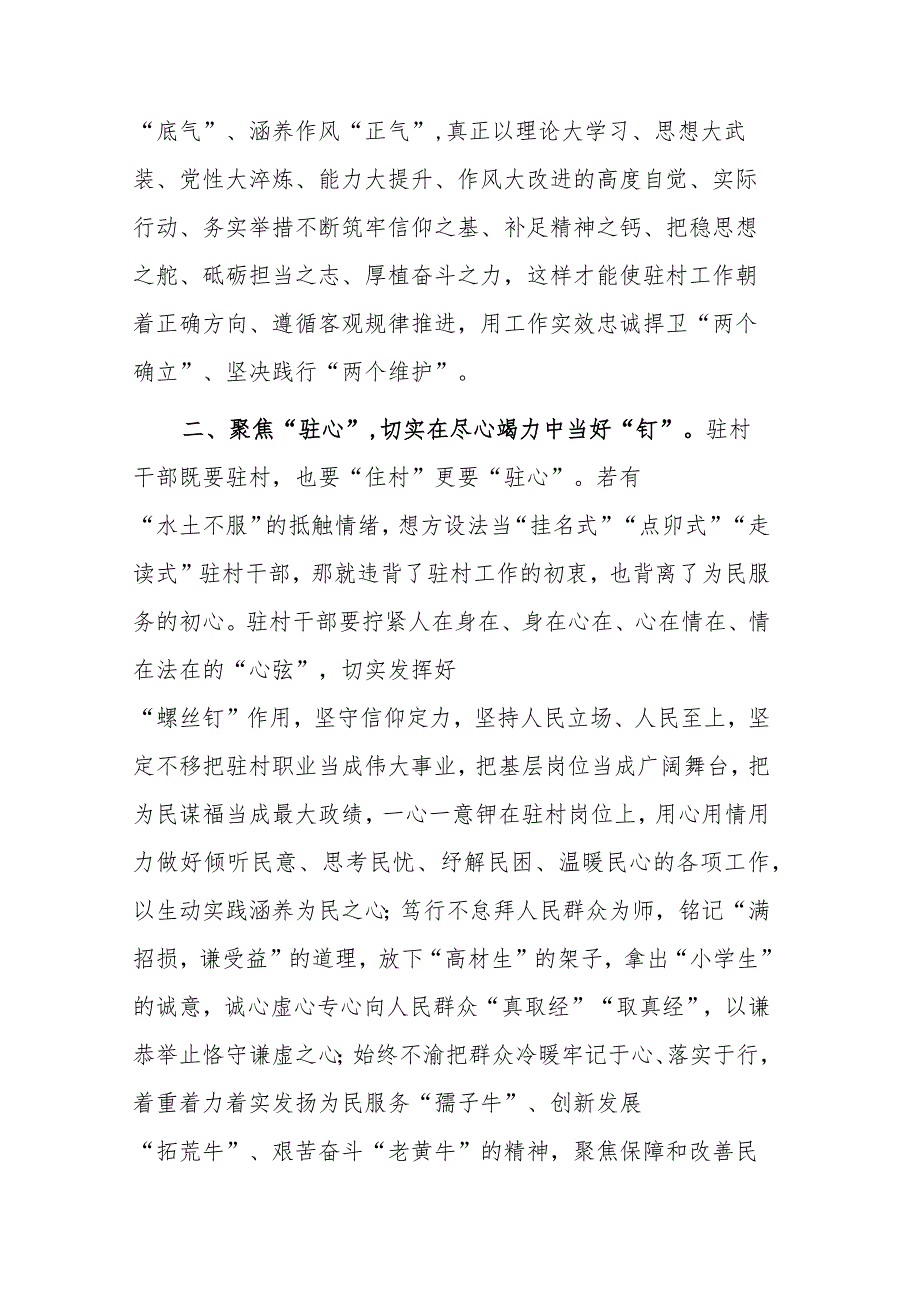 “底气”、涵养作风“正气”,真正以理论大学习、思想大武
装、党性大淬炼、能力大提升、作风大改进的高度自觉、实际
行动、务实举措不断筑牢信仰之基、补足精神之钙、把稳思想
之舵、砥砺担当之志、厚植奋斗之力，这样才能使驻村工作朝
着正确方向、遵循客观规律推进，用工作实效忠诚捍卫“两个
确立”、坚决践行“两个维护”。
二、聚焦“驻心”,切实在尽心竭力中当好“钉”。驻村
干部既要驻村，也要“住村”更要“驻心”。若有
“水土不服”的抵触情绪，想方设法当“挂名式”“点卯式”“走
读式”驻村干部，那就违背了驻村工作的初衷，也背离了为民服
务的初心。驻村干部要拧紧人在身在、身在心在、心在情在、情
在法在的“心弦”，切实发挥好
“螺丝钉”作用，坚守信仰定力，坚持人民立场、人民至上，坚
定不移把驻村职业当成伟大事业，把基层岗位当成广阔舞台，把
为民谋福当成最大政绩，一心一意钾在驻村岗位上，用心用情用
力做好倾听民意、思考民忧、纾解民困、温暖民心的各项工作，
以生动实践涵养为民之心；笃行不怠拜人民群众为师，铭记“满
招损，谦受益”的道理，放下“高材生”的架子，拿出“小学生”
的诚意，诚心虚心专心向人民群众“真取经”“取真经”，以谦
恭举止恪守谦虚之心；始终不渝把群众冷暖牢记于心、落实于行，
着重着力着实发扬为民服务“孺子牛”、创新发展
“拓荒牛”、艰苦奋斗“老黄牛”的精神，聚焦保障和改善民